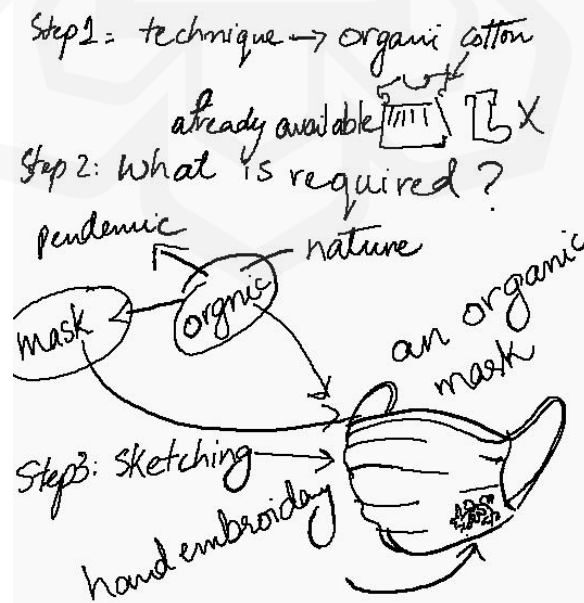 Step1 = technique → organi cotton
already available X
Step 2: What is required?
pendemic
nature
orgnic
mask
an organic
mask
Step3: sketching
hand embroiday